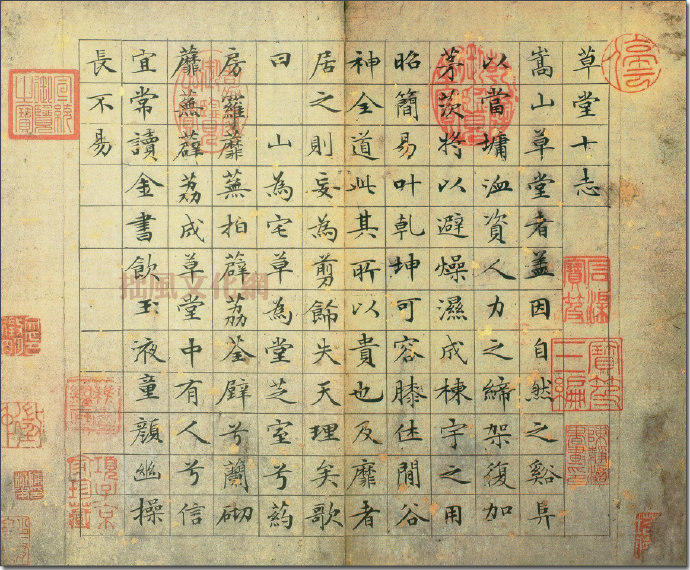 草堂十志
嵩山草堂者蓋因自然之谿阜
以當墉洫資人力之締架復加
茅茨將以避燥濕成棟宇之用
昭簡易叶乾坤可容膝休閒谷
神全道此其所以貴也及靡者
居之則妄為剪飾失天理矣歌
曰 山為宅草為堂芝室兮葯
房羅蘼蕪拍薜荔荃壁兮蘭砌
蘼蕪薜荔成草堂中有人兮信
宜常讀金書飲玉液童顏幽操
長不易
石渠寶笈
寶笈三編
項子京家珍藏
拙風文化網